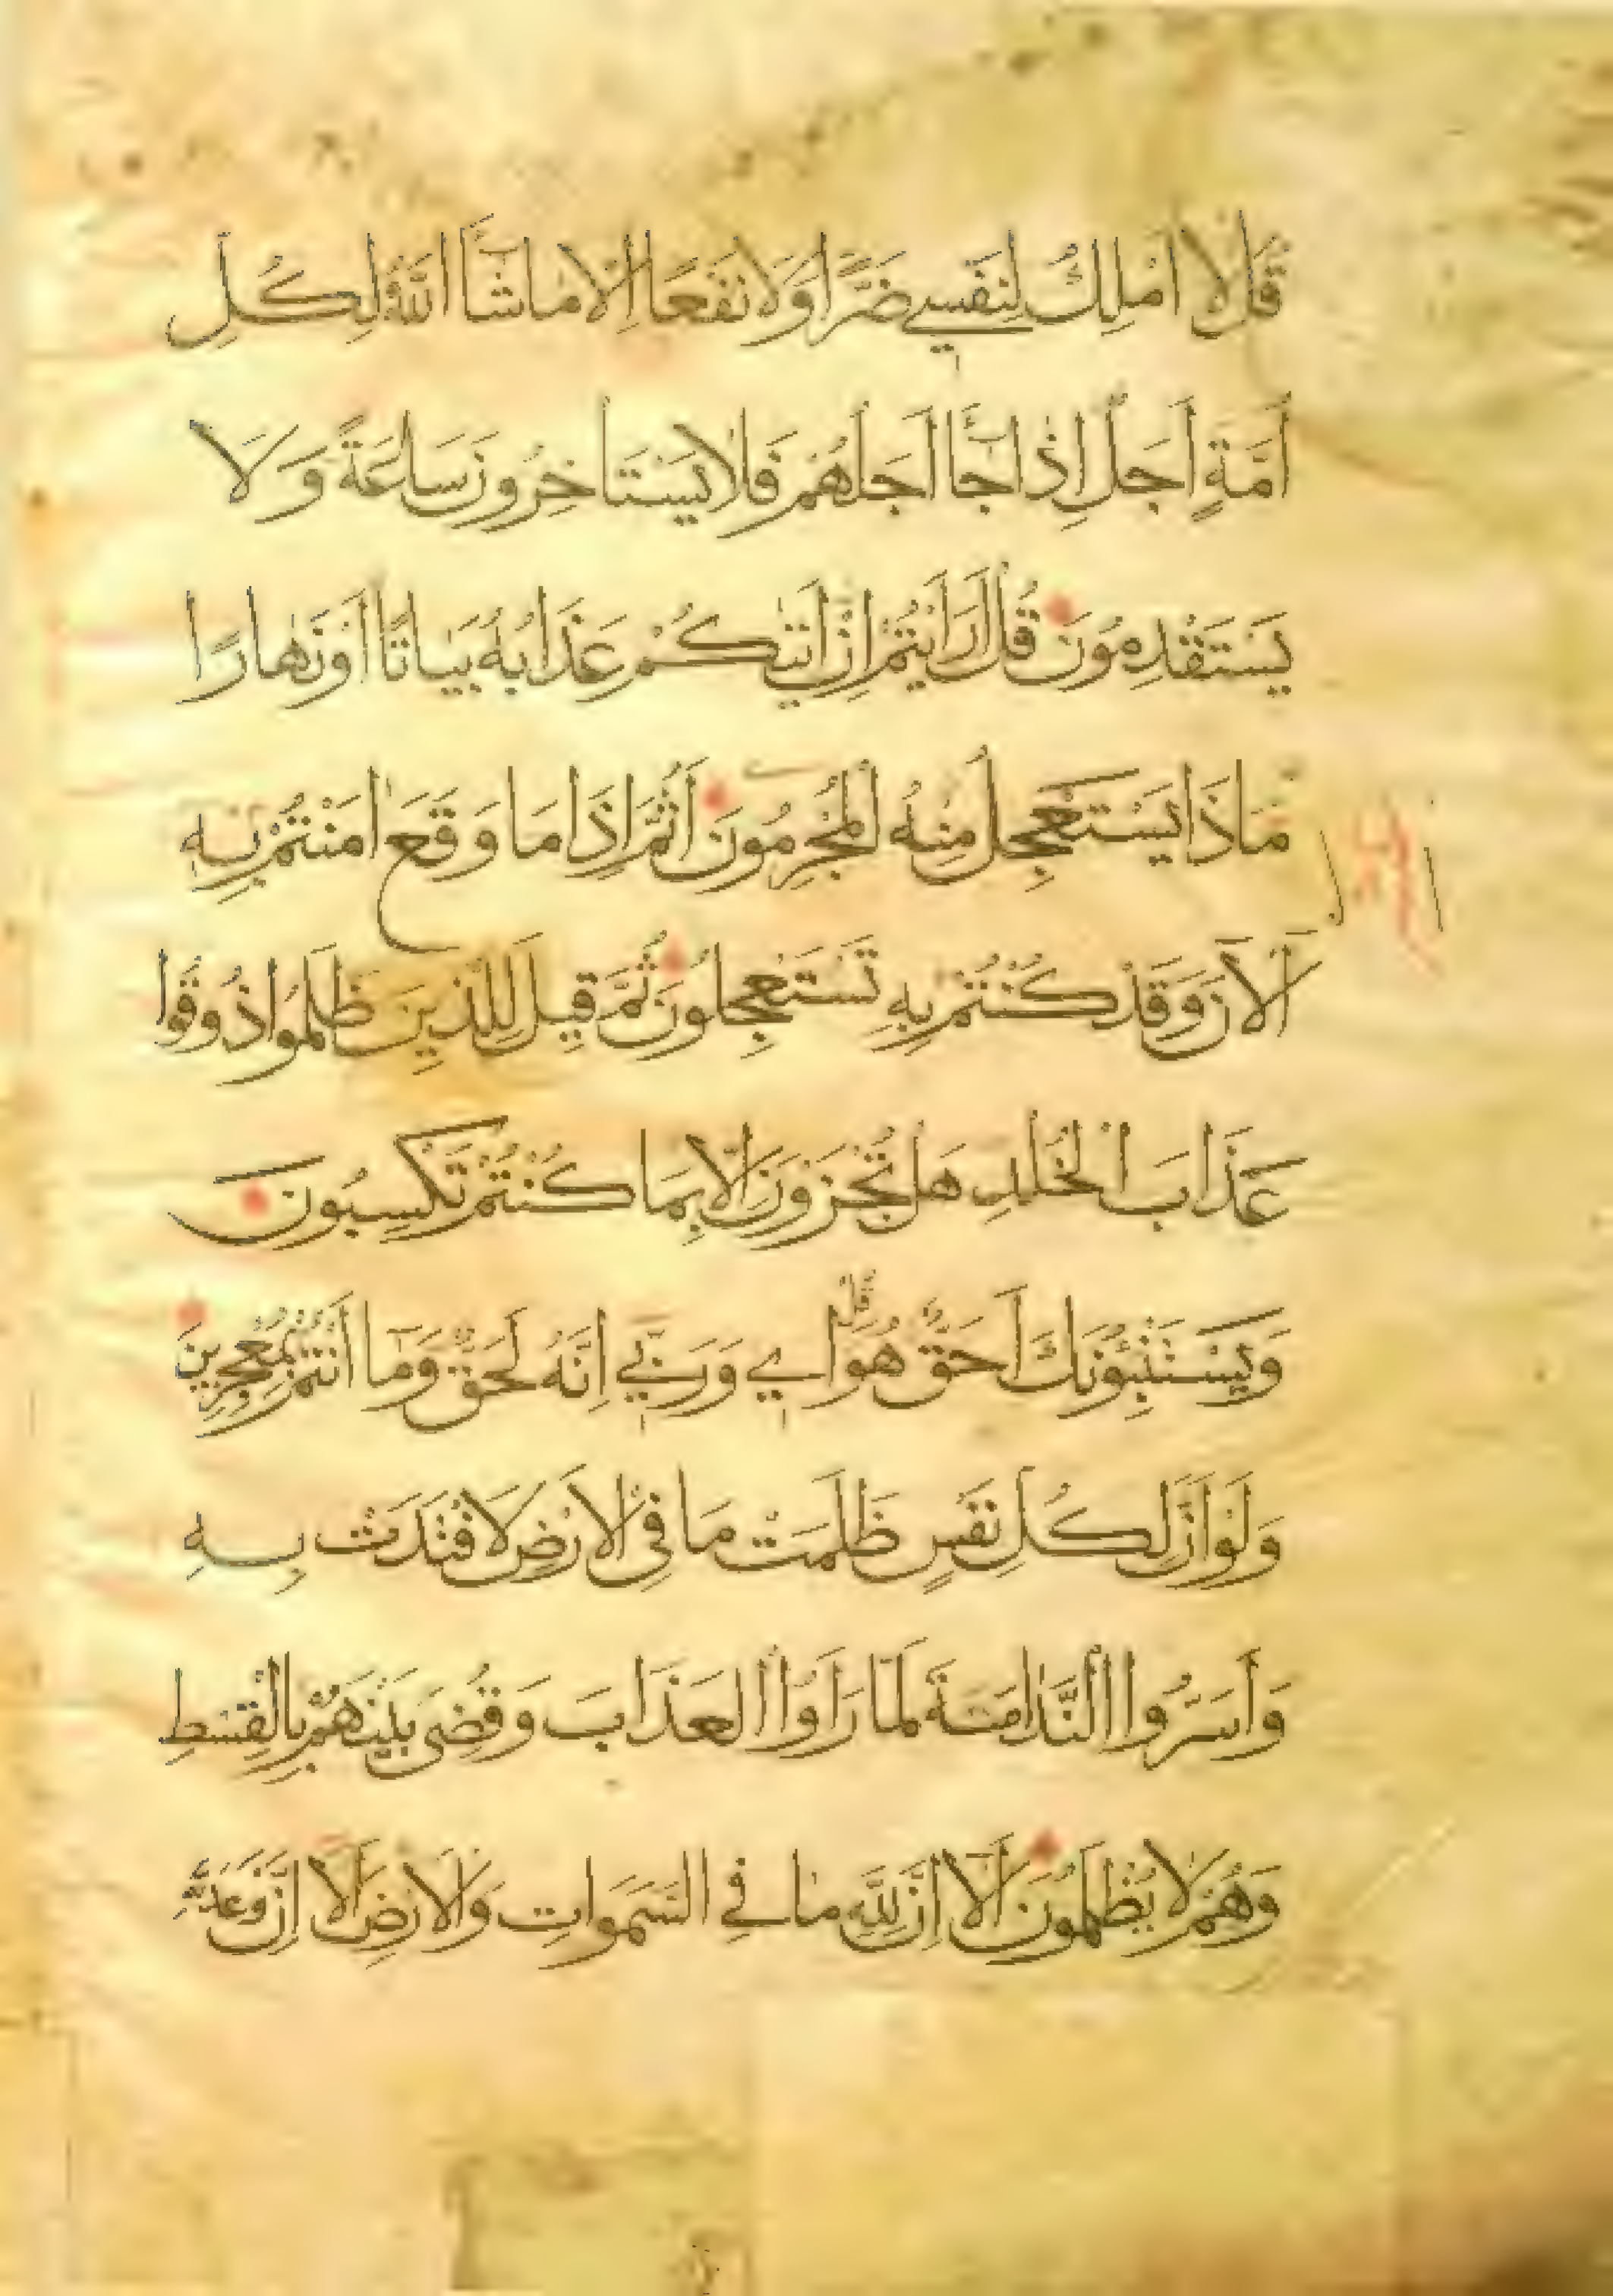 قُلْ لَا اَمْلِكُ لِنَفْسِي ضَرًّا وَلَا نَفْعًا اِلَّا مَا شَآءَ اللّٰهُ لِكُلِّ
اُمَّةٍ اَجَلٌ اِذَا جَآءَ اَجَلُهُمْ فَلَا يَسْتَاخِرُونَ سَاعَةً وَلَا
يَسْتَقْدِمُونَ قُلْ اَرَاَيْتُمْ اِنْ اَتٰيكُمْ عَذَابُهُ بَيَاتًا اَوْ نَهَارًا
مَاذَا يَسْتَعْجِلُ مِنْهُ الْمُجْرِمُونَ اَثُمَّ اِذَا مَا وَقَعَ اٰمَنْتُمْ بِهِ
آلْاٰنَ وَقَدْ كُنْتُمْ بِهِ تَسْتَعْجِلُونَ ثُمَّ قِيلَ لِلَّذِينَ ظَلَمُوا ذُوقُوا
عَذَابَ الْخُلْدِ هَلْ تُجْزَوْنَ اِلَّا بِمَا كُنْتُمْ تَكْسِبُونَ
وَيَسْتَنْبِئُونَكَ اَحَقٌّ هُوَ قُلْ اِي وَرَبِّي اِنَّهُ لَحَقٌّ وَمَآ اَنْتُمْ بِمُعْجِزِينَ
وَلَوْ اَنَّ لِكُلِّ نَفْسٍ ظَلَمَتْ مَا فِي الْاَرْضِ لَافْتَدَتْ بِهِ
وَأَسَرُّوا النَّدَامَةَ لَمَّا رَاَوُا الْعَذَابَ وَقُضِيَ بَيْنَهُمْ بِالْقِسْطِ
وَهُمْ لَا يُظْلَمُونَ اَلَآ اِنَّ لِلّٰهِ مَا فِي السَّمَوَاتِ وَالْاَرْضِ اَلَآ اِنَّ وَعْدَ